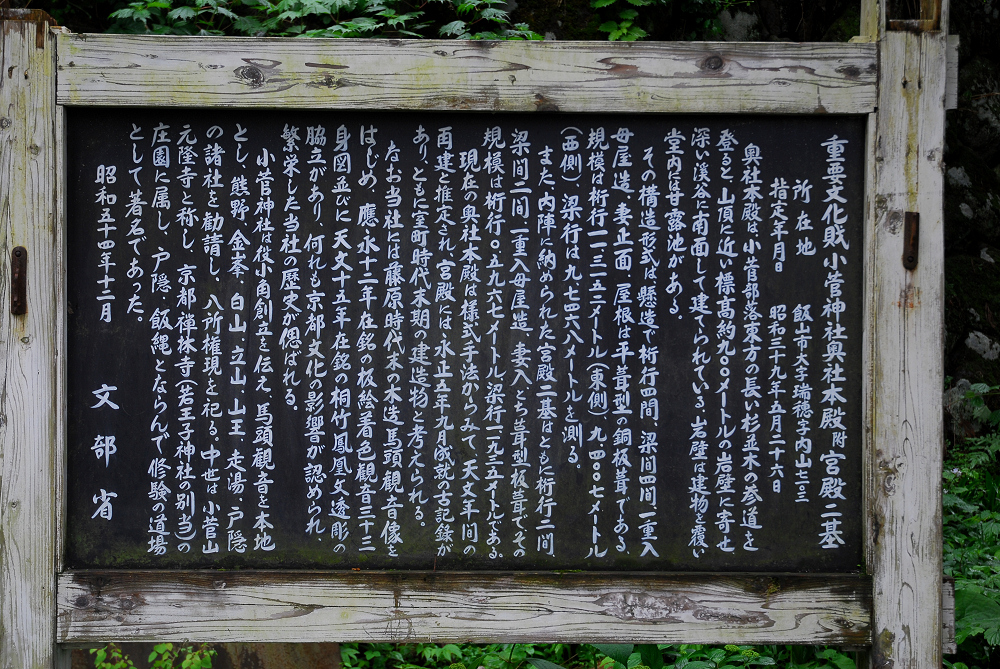 重要文化財小菅神社奥社本殿附宮殿二基
所在地 飯山市大字瑞穂字内山七ノ三
指定年月日 昭和三十九年五月二十六日
奥社本殿は、小菅部落東方の長い杉並木の参道を
登ると、山頂に近い標高約九〇〇メートルの岩壁に寄せ
深い渓谷に南面して建てられている。岩壁は建物を覆い
堂内には甘露池がある。
その構造形式は、懸造で桁行四間、梁間四間一重入
母屋造、妻正面、屋根は平葺型の銅板葺である。
規模は桁行一一・三五二メートル(東側)、九・四〇七メートル
(西側)、梁行は九・七四六八メートルを測る。
また、内陣に納められた宮殿二基はともに桁行二間
梁間二間一重入母屋造、妻入、とち葺型板葺でその
規模は桁行〇・五九六七メートル、梁行一・九三五メートルである。
現在の奥社本殿は様式手法からみて、天文年間の
再建と推定され、宮殿には、永正五年九月成就の古記録が
あり、ともに室町時代末期の建造物と考えられる。
なお当社には藤原時代末の木造馬頭観音像を
はじめ、應永十二年在銘の板絵着色観音三十三
身図並びに天文十五年在銘の桐竹鳳凰文透彫の
脇立があり、何れも京都文化の影響が認められ
繁栄した当社の歴史が偲ばれる。
小菅神社は役小角創立と伝え、馬頭観音を本地
とし、熊野、金峯、白山、立山、山王、走湯、戸隠
の諸社を勧請し、八所権現を祀る。中世は小菅山
元隆寺と称し、京都禅林寺(若王子神社の別当)の
庄園に属し、戸隠・飯縄とならんで修験の道場
として著名であった。
昭和五十四年十二月 文部省